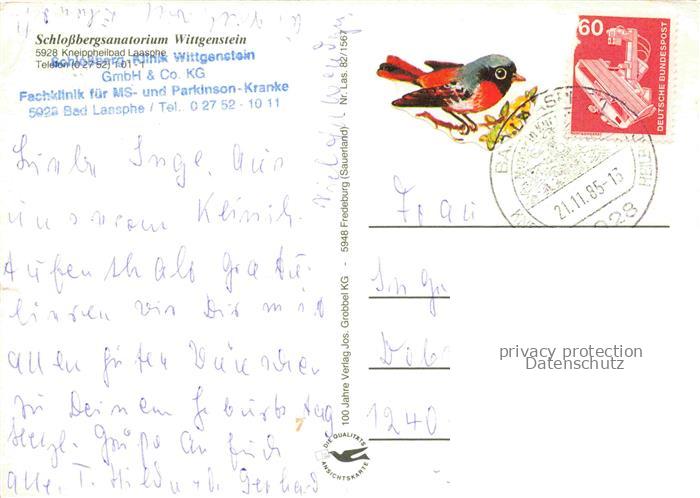 Schloßbergsanatorium Wittgenstein
5928 Kneippheilbad Laasphe
Telefon (0 27 52) 1 01 1
Schloßberg-Klinik Wittgenstein
GmbH & Co. KG
Fachklinik für MS- und Parkinson-Kranke
5928 Bad Laasphe / Tel. 0 27 52 - 10 11
Liebe Inge, Aus
unserem Klinik-
Aufenthalt gratu-
lieren wir Dir mit
allen guten Wünschen
zu Deinem Geburtstag
Herzl. Grüße an Euch
alle, T. Hilde u. Gerhard
Nr. Las. 82/1567
100 Jahre Verlag Jos. Grobbel KG - 5948 Fredeburg (Sauerland)
DIE QUALITÄTS
ANSICHTSKARTE
60
DEUTSCHE BUNDESPOST
21.11.85-13
5928
Frau
Inge
1240
privacy protection
Datenschutz